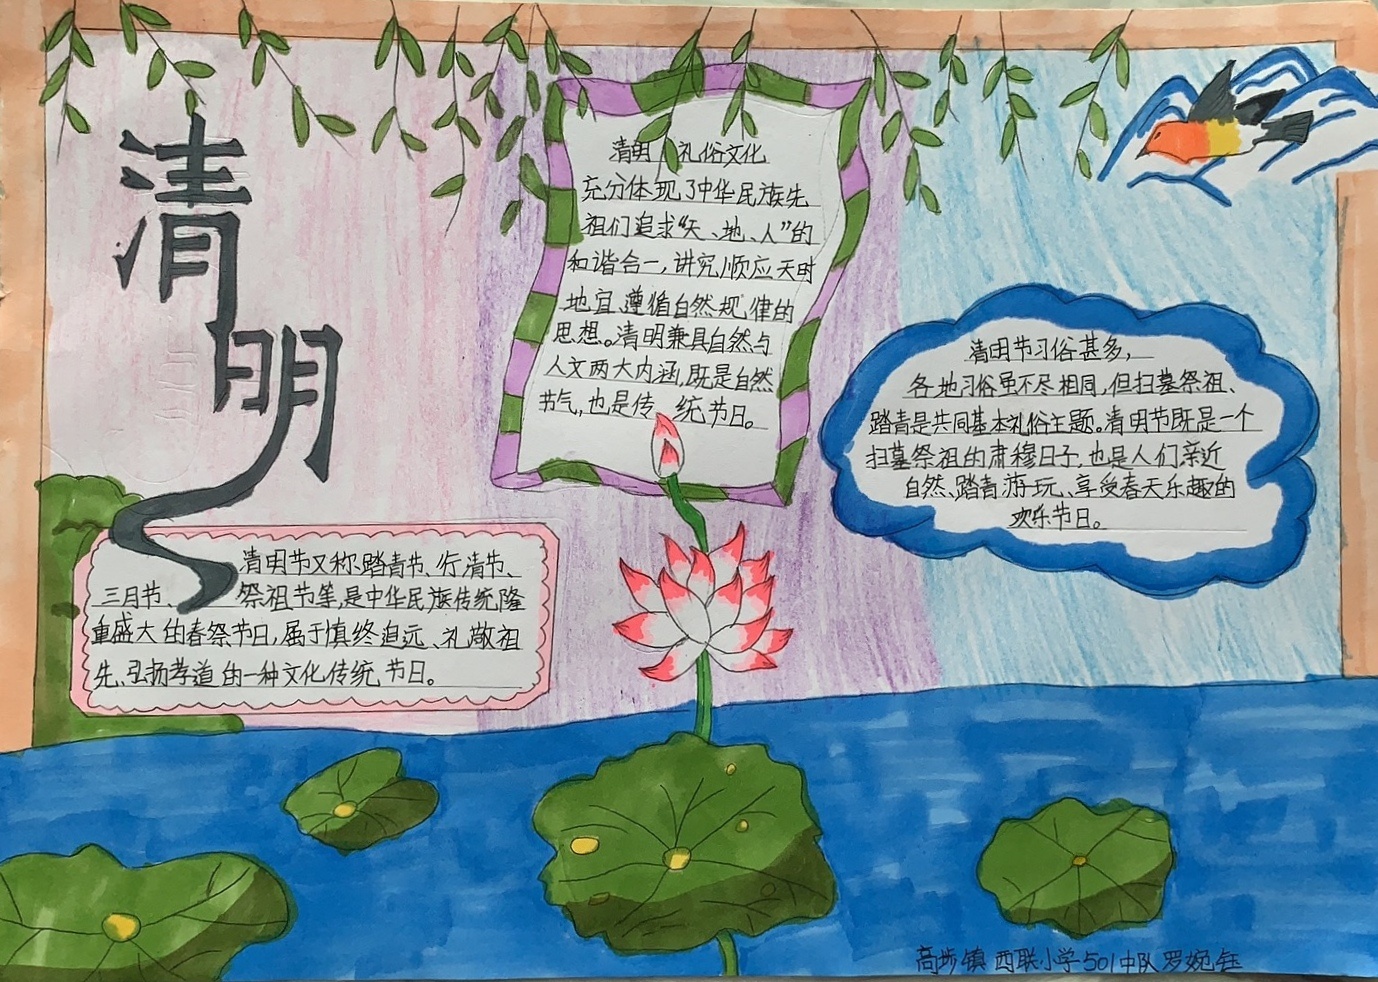 清明
清明礼俗文化
充分体现了中华民族先
祖们追求“天、地、人”的
和谐合一，讲究顺应天时
地宜、遵循自然规律的
思想。清明兼具自然与
人文两大内涵，既是自然
节气，也是传统节日。
清明节习俗甚多，
各地习俗虽不尽相同，但扫墓祭祖、
踏青是共同基本礼俗主题。清明节既是一个
扫墓祭祖的肃穆日子，也是人们亲近
自然、踏青游玩、享受春天乐趣的
欢乐节日。
清明节又称踏青节、行清节、
三月节、祭祖节等，是中华民族传统隆
重盛大的春祭节日，属于慎终追远、礼敬祖
先、弘扬孝道的一种文化传统节日。
高埗镇西联小学501中队罗婉钰